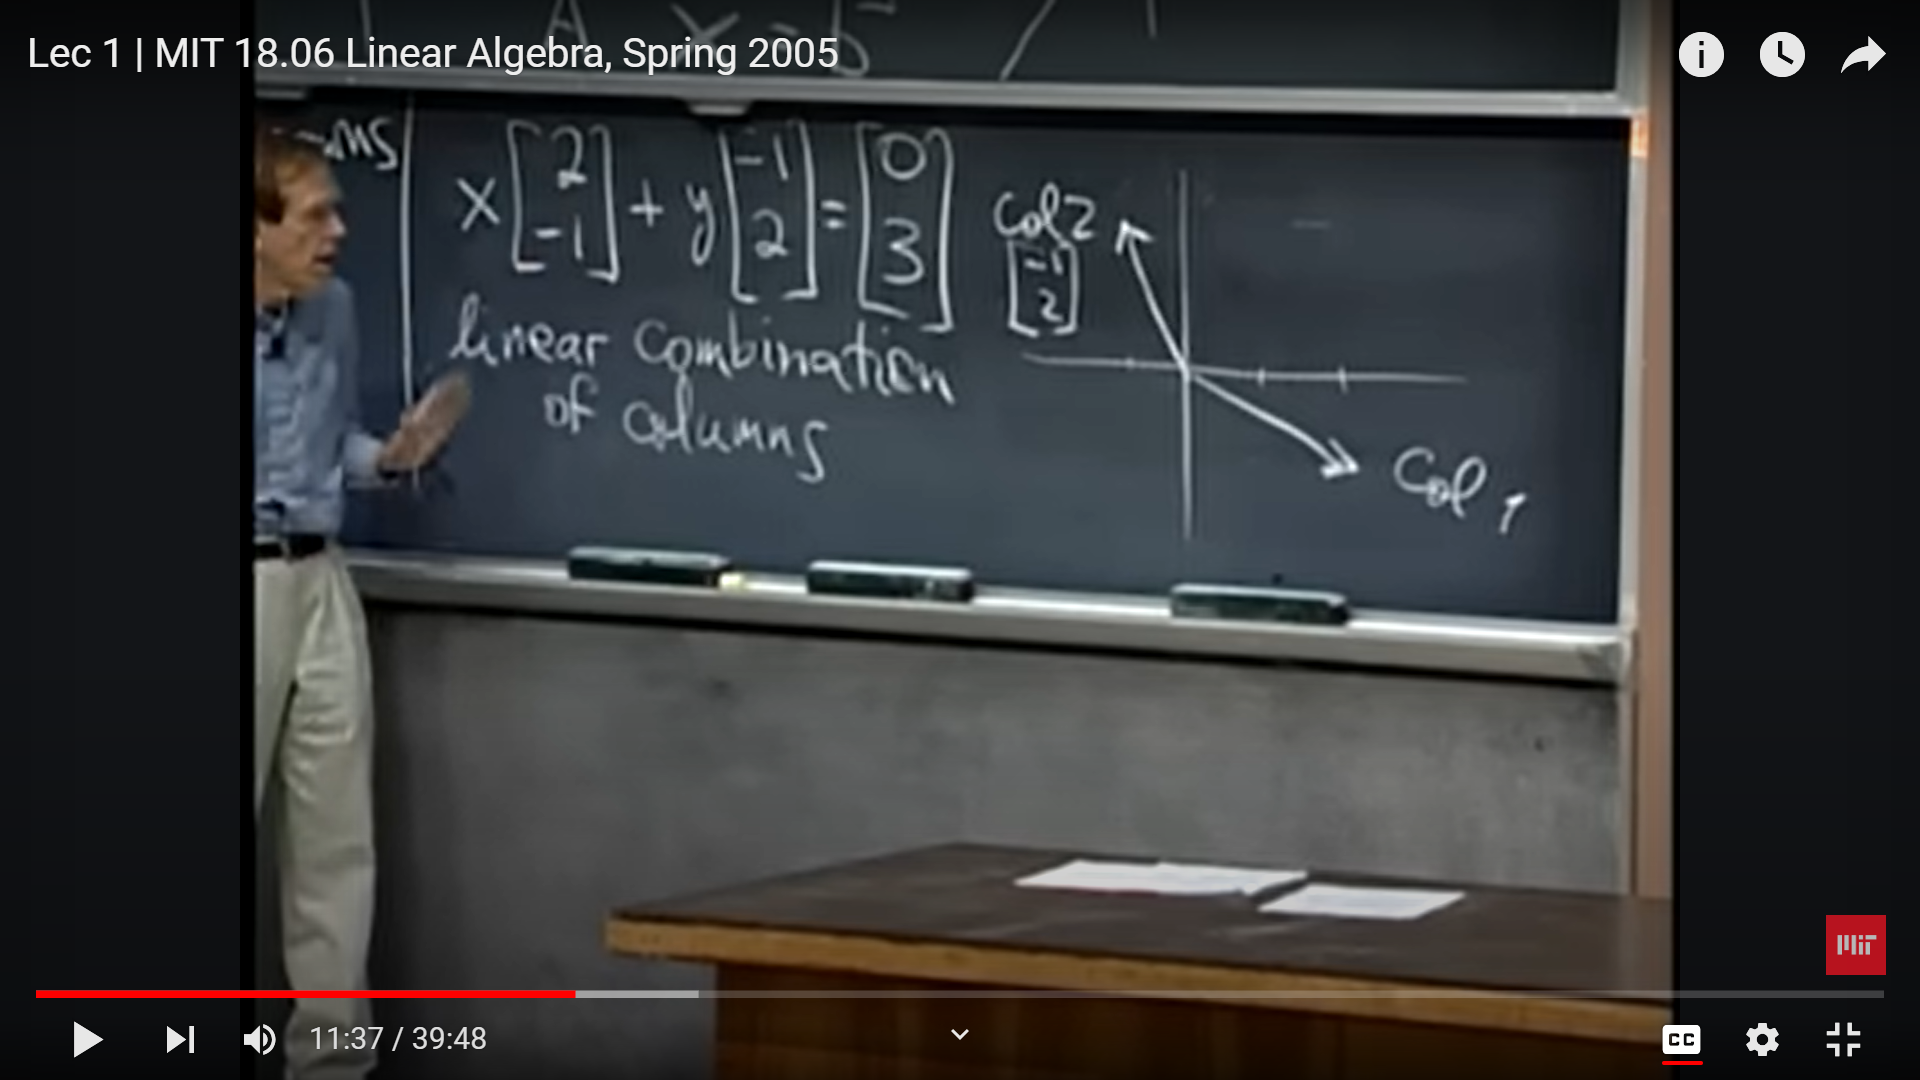 Lec 1 | MIT 18.06 Linear Algebra, Spring 2005
x [2 -1] + y [-1 2] = [0 3]
linear combination
of columns
Col 2
[-1
2]
Col 1
MIT
11:37 / 39:48
CC